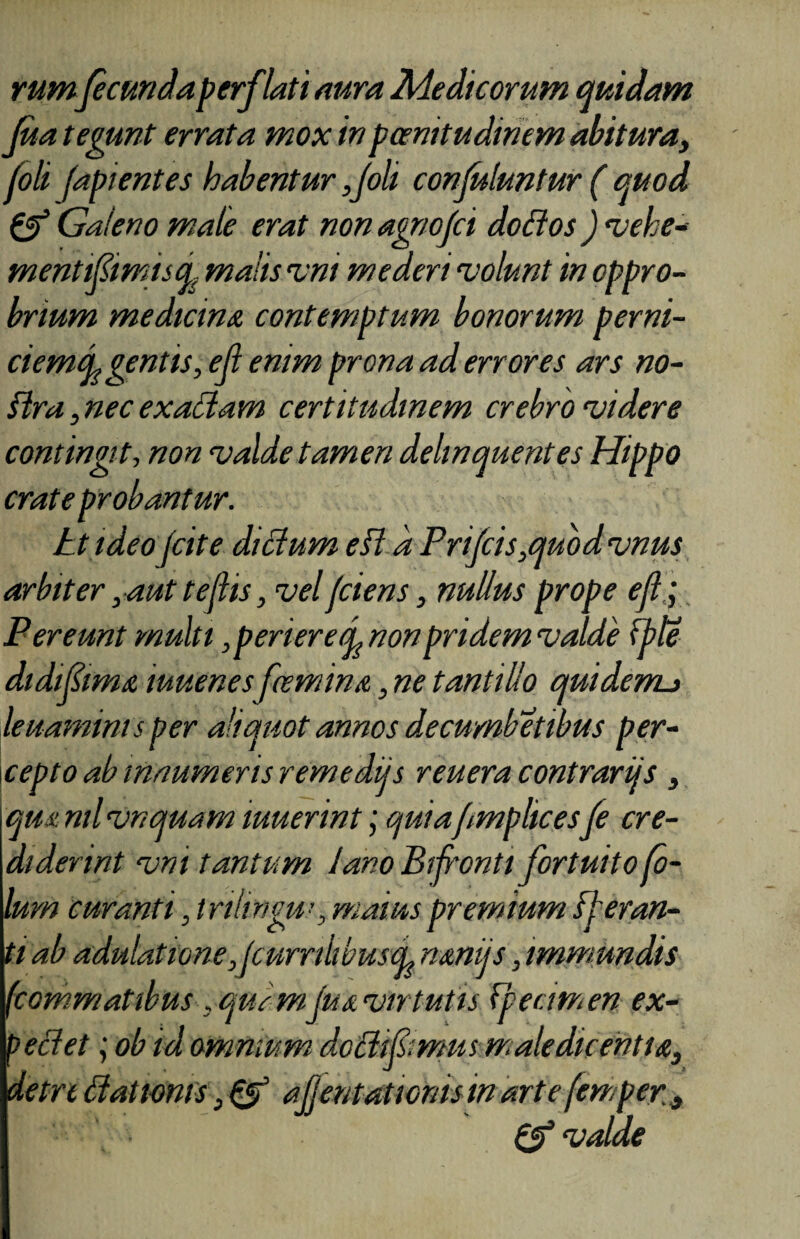 rum ſecunda perflati aura Medicorum quidam
ſua tegunt errata mox in pœnitudinem abitura,
ſoli ſapientes habentur, ſoli conſuluntur ( quod
& Galeno male erat non agnoſci doctos ) vehe-
mentiſsimisq; malis vni mederi volunt in oppro-
brium medicinæ contemptum bonorum perni-
ciemq; gentis, eſt enim prona ad errores ars no-
ſtra, nec exactam certitudinem crebrò videre
contingit, non valde tamen delinquentes Hippo
crate probantur.
Et ideo ſcite dictum eſt à Priſcis, quòd vnus
arbiter, aut teſtis, vel ſciens, nullus prope eſt;
Pereunt multi, periereq; non pridem valdè ſplē
didiſsimæ iuuenes fœminæ, ne tantillo quidem
leuaminis per aliquot annos decumbētibus per-
cepto ab innumeris remedijs reuera contrarijs,
quæ nil vnquam iuuerint; quia ſimplices ſe cre-
diderint vni tantum Iano Bifronti fortuito ſo-
lum curanti, trilingui, maius premium ſperan-
ti ab adulatione, ſcurrilibusq; nænijs, immundis
ſcommatibus, quàm ſuæ virtutis ſpecimen ex-
pectet; ob id omnium doctiſsimus maledicentiæ,
detrectationis, & aſſentationis in arte ſemper,
& valde